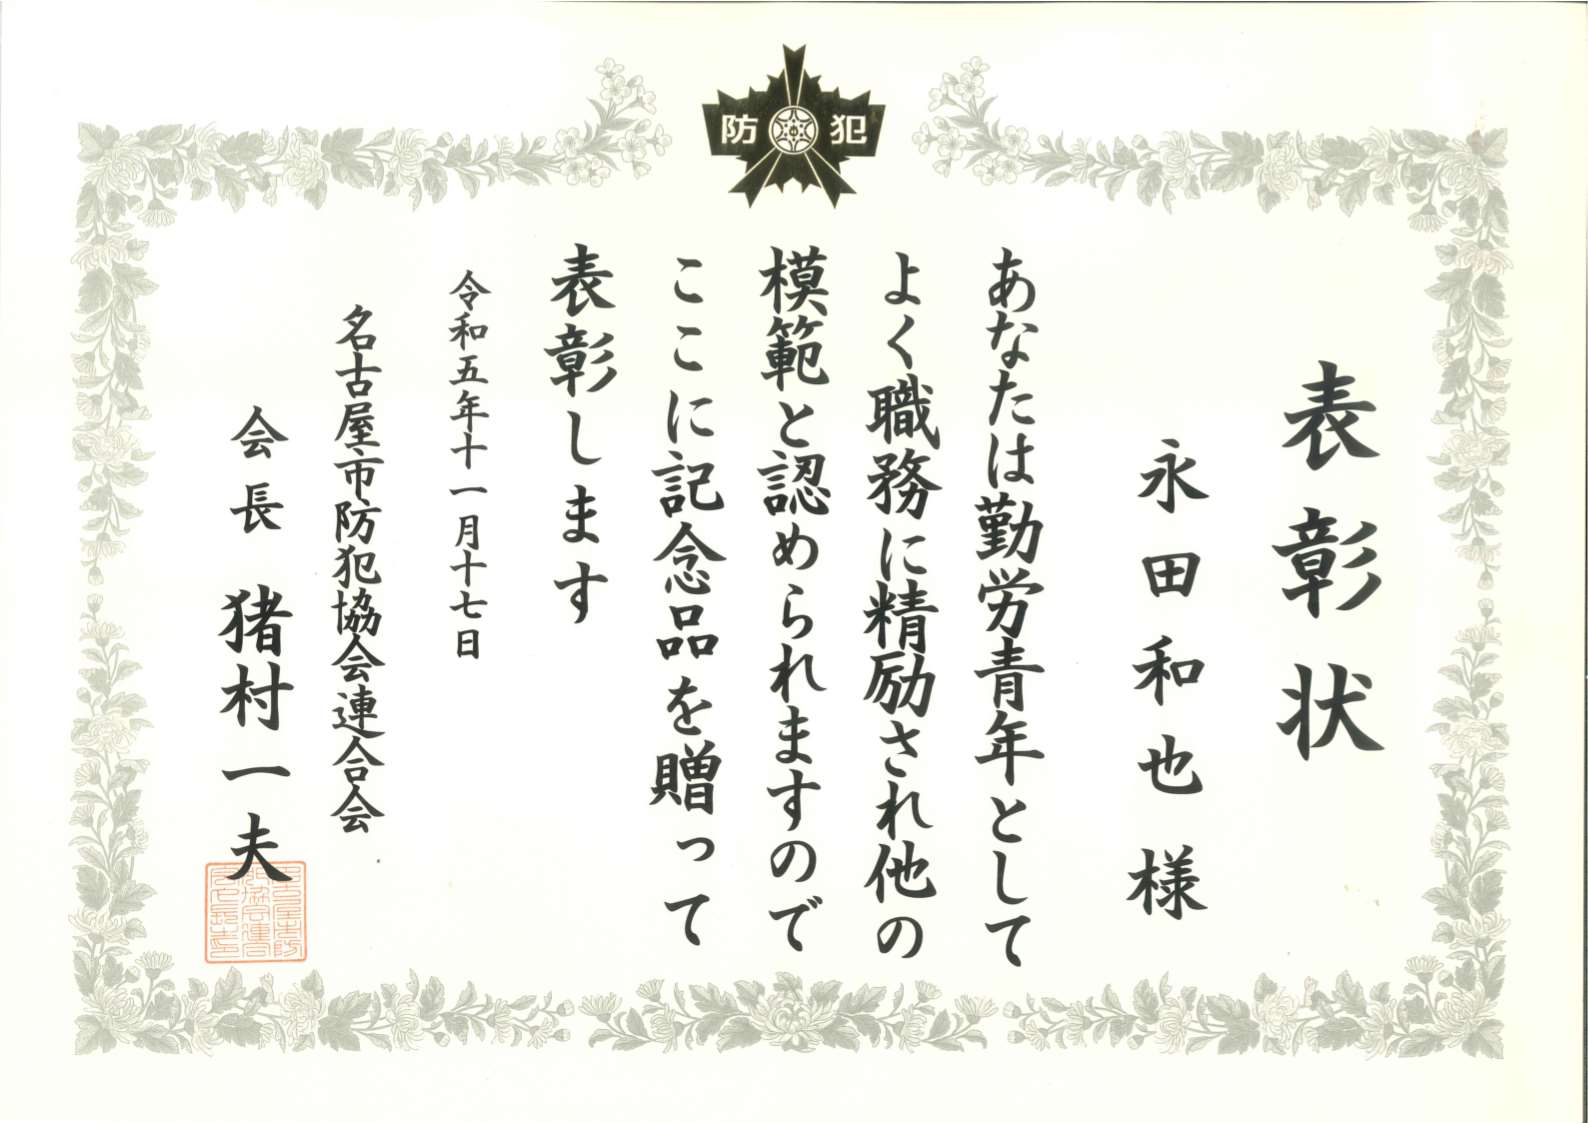 防犯
表彰状
永田和也様
あなたは勤労青年として
よく職務に精励され他の
模範と認められますので
ここに記念品を贈って
表彰します
令和五年十一月十七日
名古屋市防犯協会連合会
会長 猪村一夫